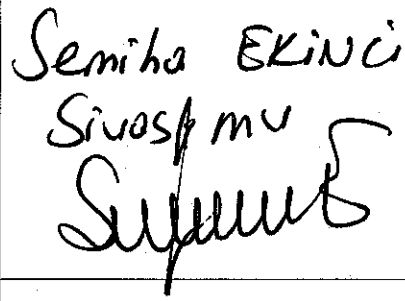 Semiha EKiNCi
Sivas mv